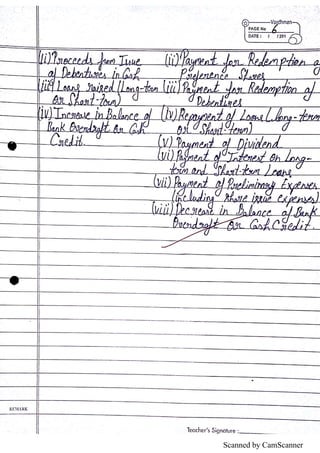 Vardhman
PAGE No. 6
DATE: / /201
(ii) Proceeds from Issue
of Debentures in Cash
(iii) Loans raised (Long-term
or Short-term)
(iv) Increase in Balance of
Bank Overdraft or Cash
Credit.
(ii) Payment for Redemption of
Preference Shares
(iii) Payment for Redemption of
Debentures
(iv) Repayment of Loans (Long-term
or Short-term)
(v) Payment of Dividend
(vi) Payment of Interest on Long-
term and Short-term Loans
(vii) Payment of Preliminary Expenses
(including share issue expenses)
(viii) Decrease in Balance of Bank
Overdraft or Cash Credit.
Teacher's Signature :
Scanned by CamScanner